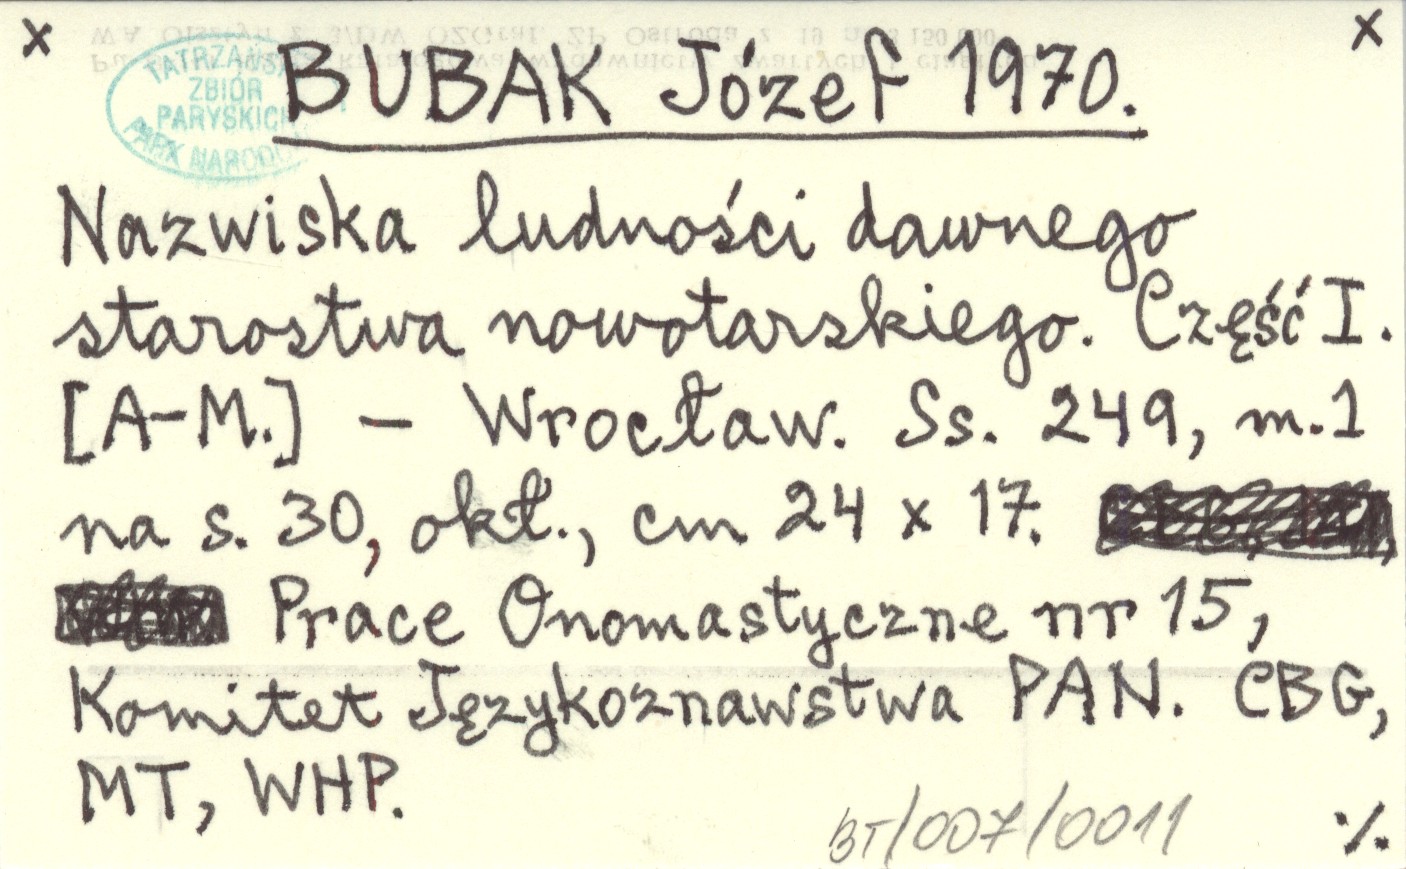 x x
TATRZAŃSKI
ZBIÓR
PARYSKICH
PARK NARODO
BUBAK Józef 1970.
Nazwiska ludności dawnego
starostwa nowotarskiego. Część I.
[A-M.] - Wrocław. Ss. 249, m.1
na s. 30, okł., cm 24 x 17.
Prace Onomastyczne nr 15,
Komitet Językoznawstwa PAN. CBG,
MT, WHP.
BT/007/0011
·/.